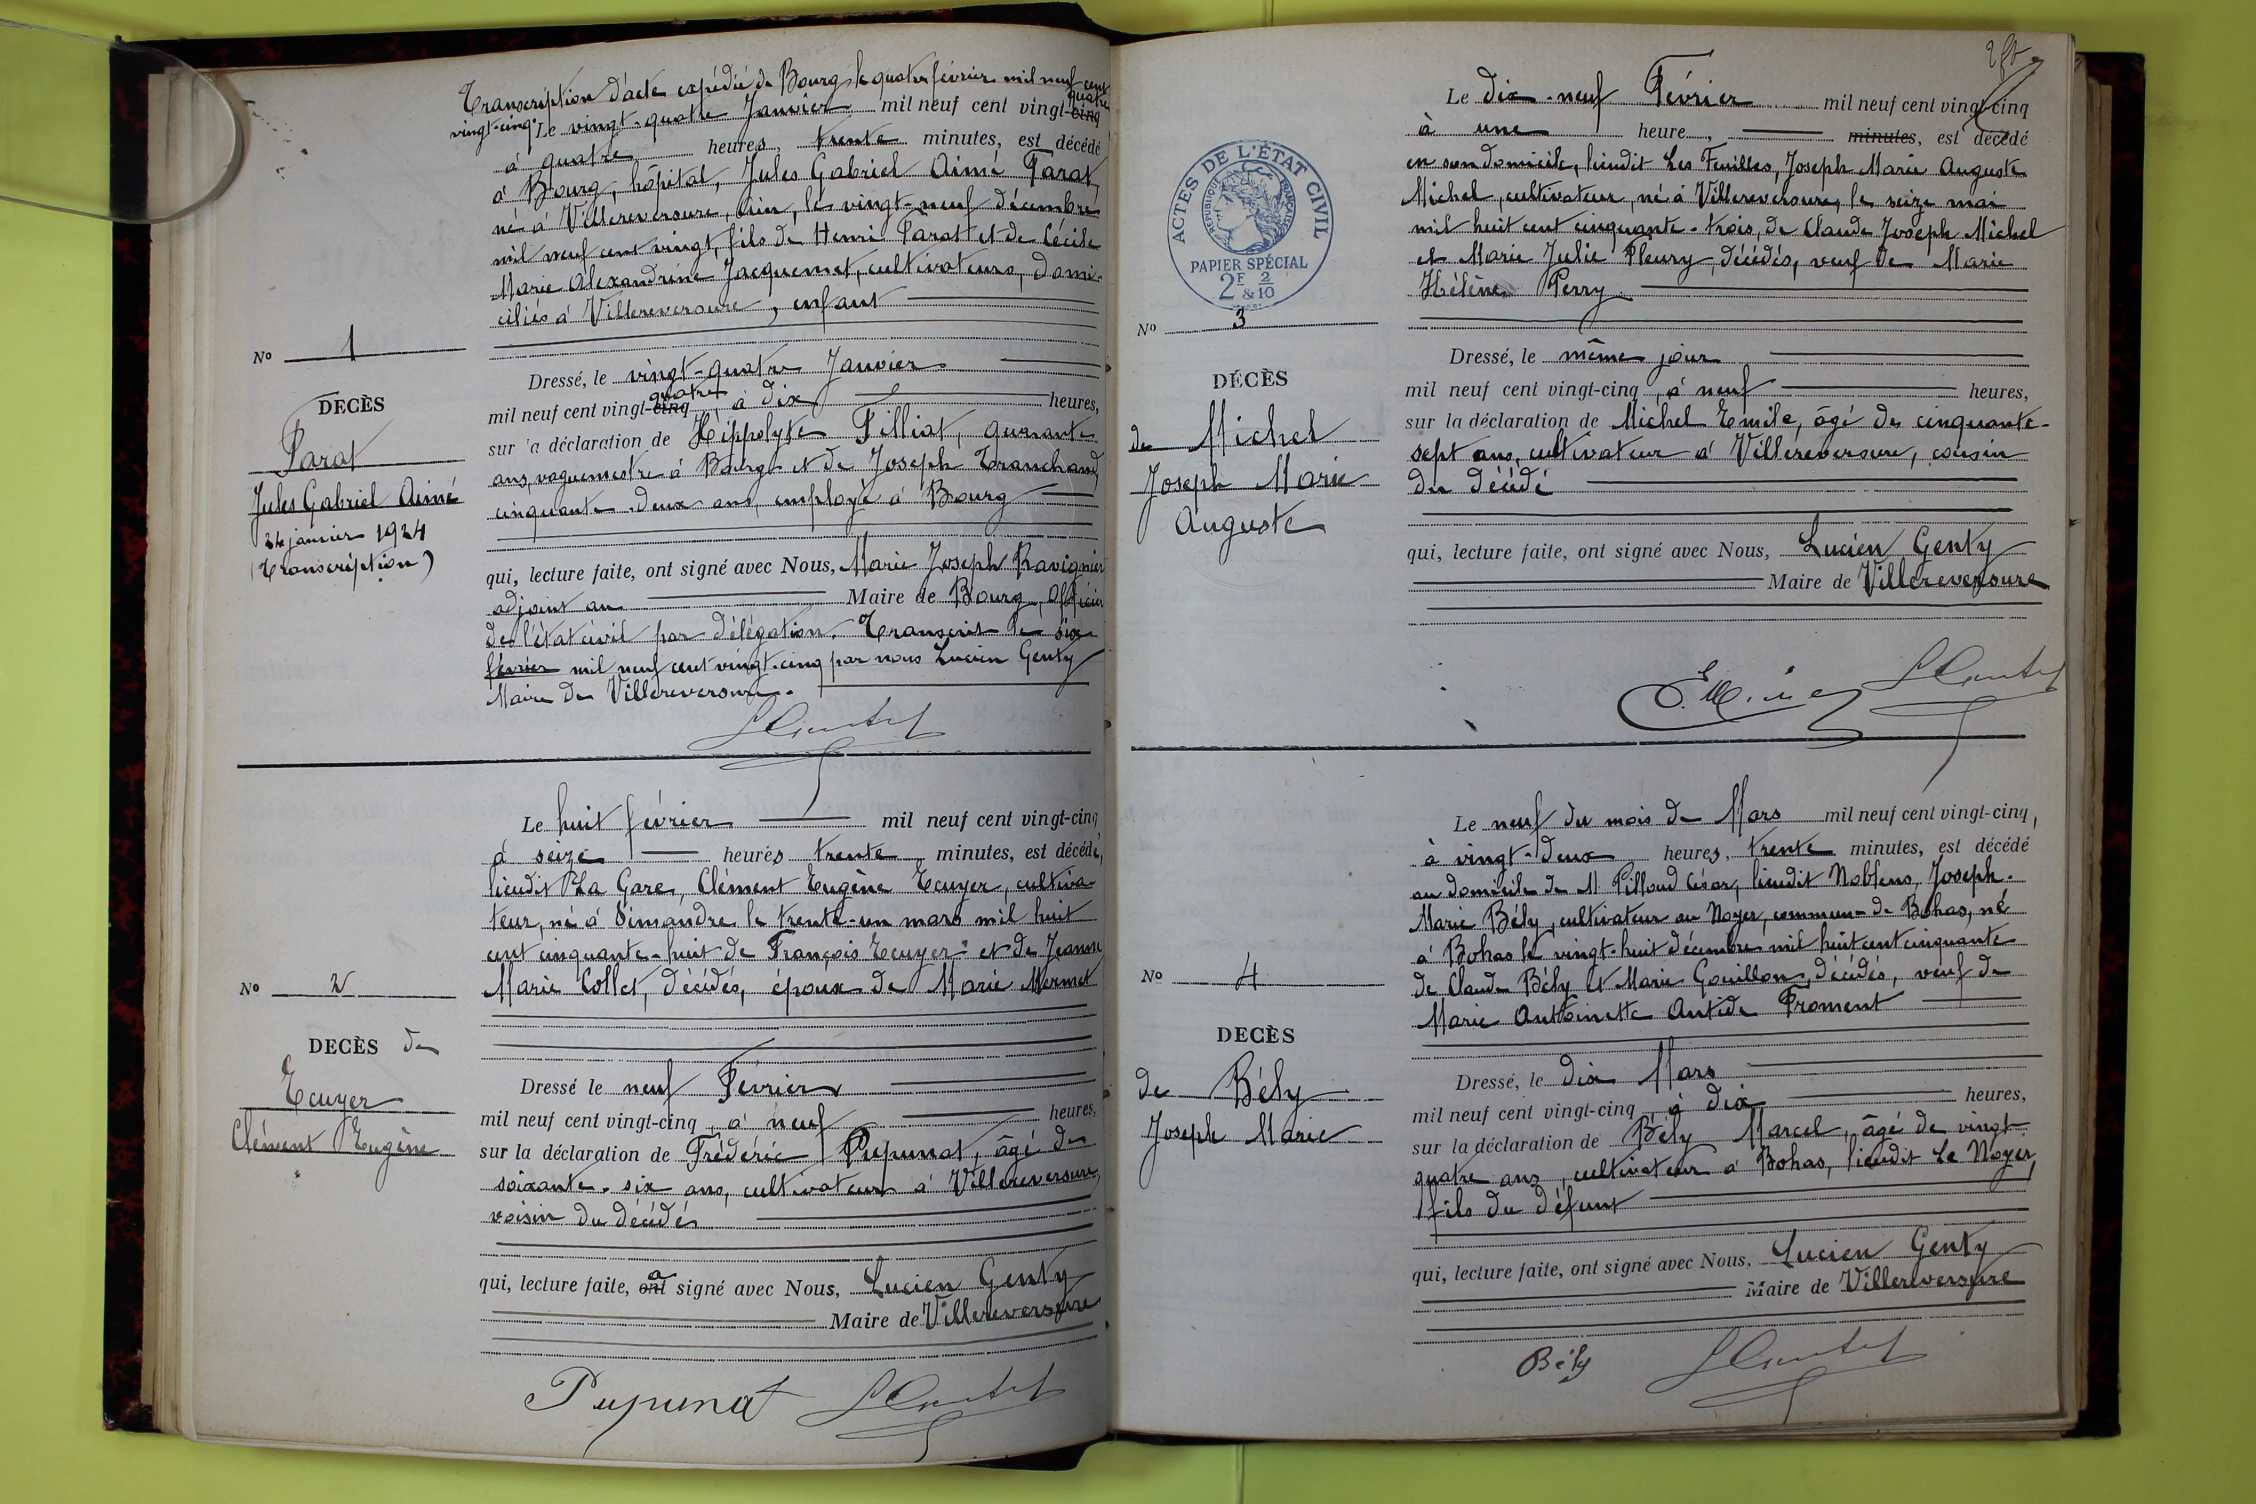 Transcription d'acte expédié de Bourg le quatre février mil neuf cent
vingt-cinq. Le vingt-quatre Janvier mil neuf cent vingt-cinq quatre
à quatre heures, trente minutes, est décédé
à Bourg, hôpital, Jules Gabriel Aimé Parat,
né à Villereversure, Ain, le vingt-neuf décembre
mil neuf cent vingt, fils de Henri Parat et de Cécile
Marie Alexandrine Jacquemet, cultivateurs, domi-
ciliés à Villereversure, enfant
No 1
DECÈS
Parat
Jules Gabriel Aimé
24 janvier 1924
(Transcription)
Dressé, le vingt-quatre Janvier
mil neuf cent vingt-cinq quatre, à dix heures,
sur la déclaration de Hippolyte Filliat, quarante
ans, vaguemestre à Bourg et de Joseph Tranchand
cinquante-deux ans, employé à Bourg
qui, lecture faite, ont signé avec Nous, Marie Joseph Ravignier
adjoint au Maire de Bourg, officier
de l'état civil par délégation. Transcrit le six
février mil neuf cent vingt-cinq par nous Lucien Genty
Maire de Villereversure.
Le huit février mil neuf cent vingt-cinq,
à seize heures trente minutes, est décédé,
lieudit La Gare, Clément Eugène Ecuyer, cultiva-
teur, né à Simandre le trente-un mars mil huit
cent cinquante-huit de François Ecuyer et de Jeanne
Marie Collet, décédés, époux de Marie Mermet
No 2
DECÈS de
Ecuyer
Clément Eugène
Dressé le neuf Février
mil neuf cent vingt-cinq, à neuf heures,
sur la déclaration de Frédéric Pupunat, âgé de
soixante-six ans, cultivateur à Villereversure,
voisin du décédé
qui, lecture faite, ont a signé avec Nous, Lucien Genty
Maire de Villereversure
Pupunat
Le dix-neuf Février mil neuf cent vingt-cinq
à une heure, minutes, est décédé
en son domicile, lieudit Les Feuilles, Joseph Marie Auguste
Michel, cultivateur, né à Villereversure, le seize mai
mil huit cent cinquante-trois, de Claude Joseph Michel
et Marie Julie Fleury, décédés, veuf de Marie
Hélène Perry
ACTES DE L'ÉTAT CIVIL
RÉPUBLIQUE FRANÇAISE
PAPIER SPÉCIAL
2F 2
&10
No 3
DÉCÈS
de Michel
Joseph Marie
Auguste
Dressé, le même jour
mil neuf cent vingt-cinq, à neuf heures,
sur la déclaration de Michel Emile, âgé de cinquante-
sept ans, cultivateur à Villereversure, cousin
du décédé
qui, lecture faite, ont signé avec Nous, Lucien Genty
Maire de Villereversure
Le neuf du mois de Mars mil neuf cent vingt-cinq,
à vingt-deux heures, trente minutes, est décédé
au domicile de M Pilloud César, lieudit Noblens, Joseph-
Marie Bély, cultivateur au Noyer, commune de Bohas, né
à Bohas le vingt-huit décembre mil huit cent cinquante
de Claude Bély et Marie Gouillon, décédés, veuf de
Marie Antoinette Antide Froment
No 4
DECÈS
de Bély
Joseph Marie
Dressé, le dix Mars
mil neuf cent vingt-cinq, à dix heures,
sur la déclaration de Bély Marcel, âgé de vingt
quatre ans, cultivateur à Bohas, lieudit Le Noyer,
fils du défunt
qui, lecture faite, ont signé avec Nous, Lucien Genty
Maire de Villereversure
Bély